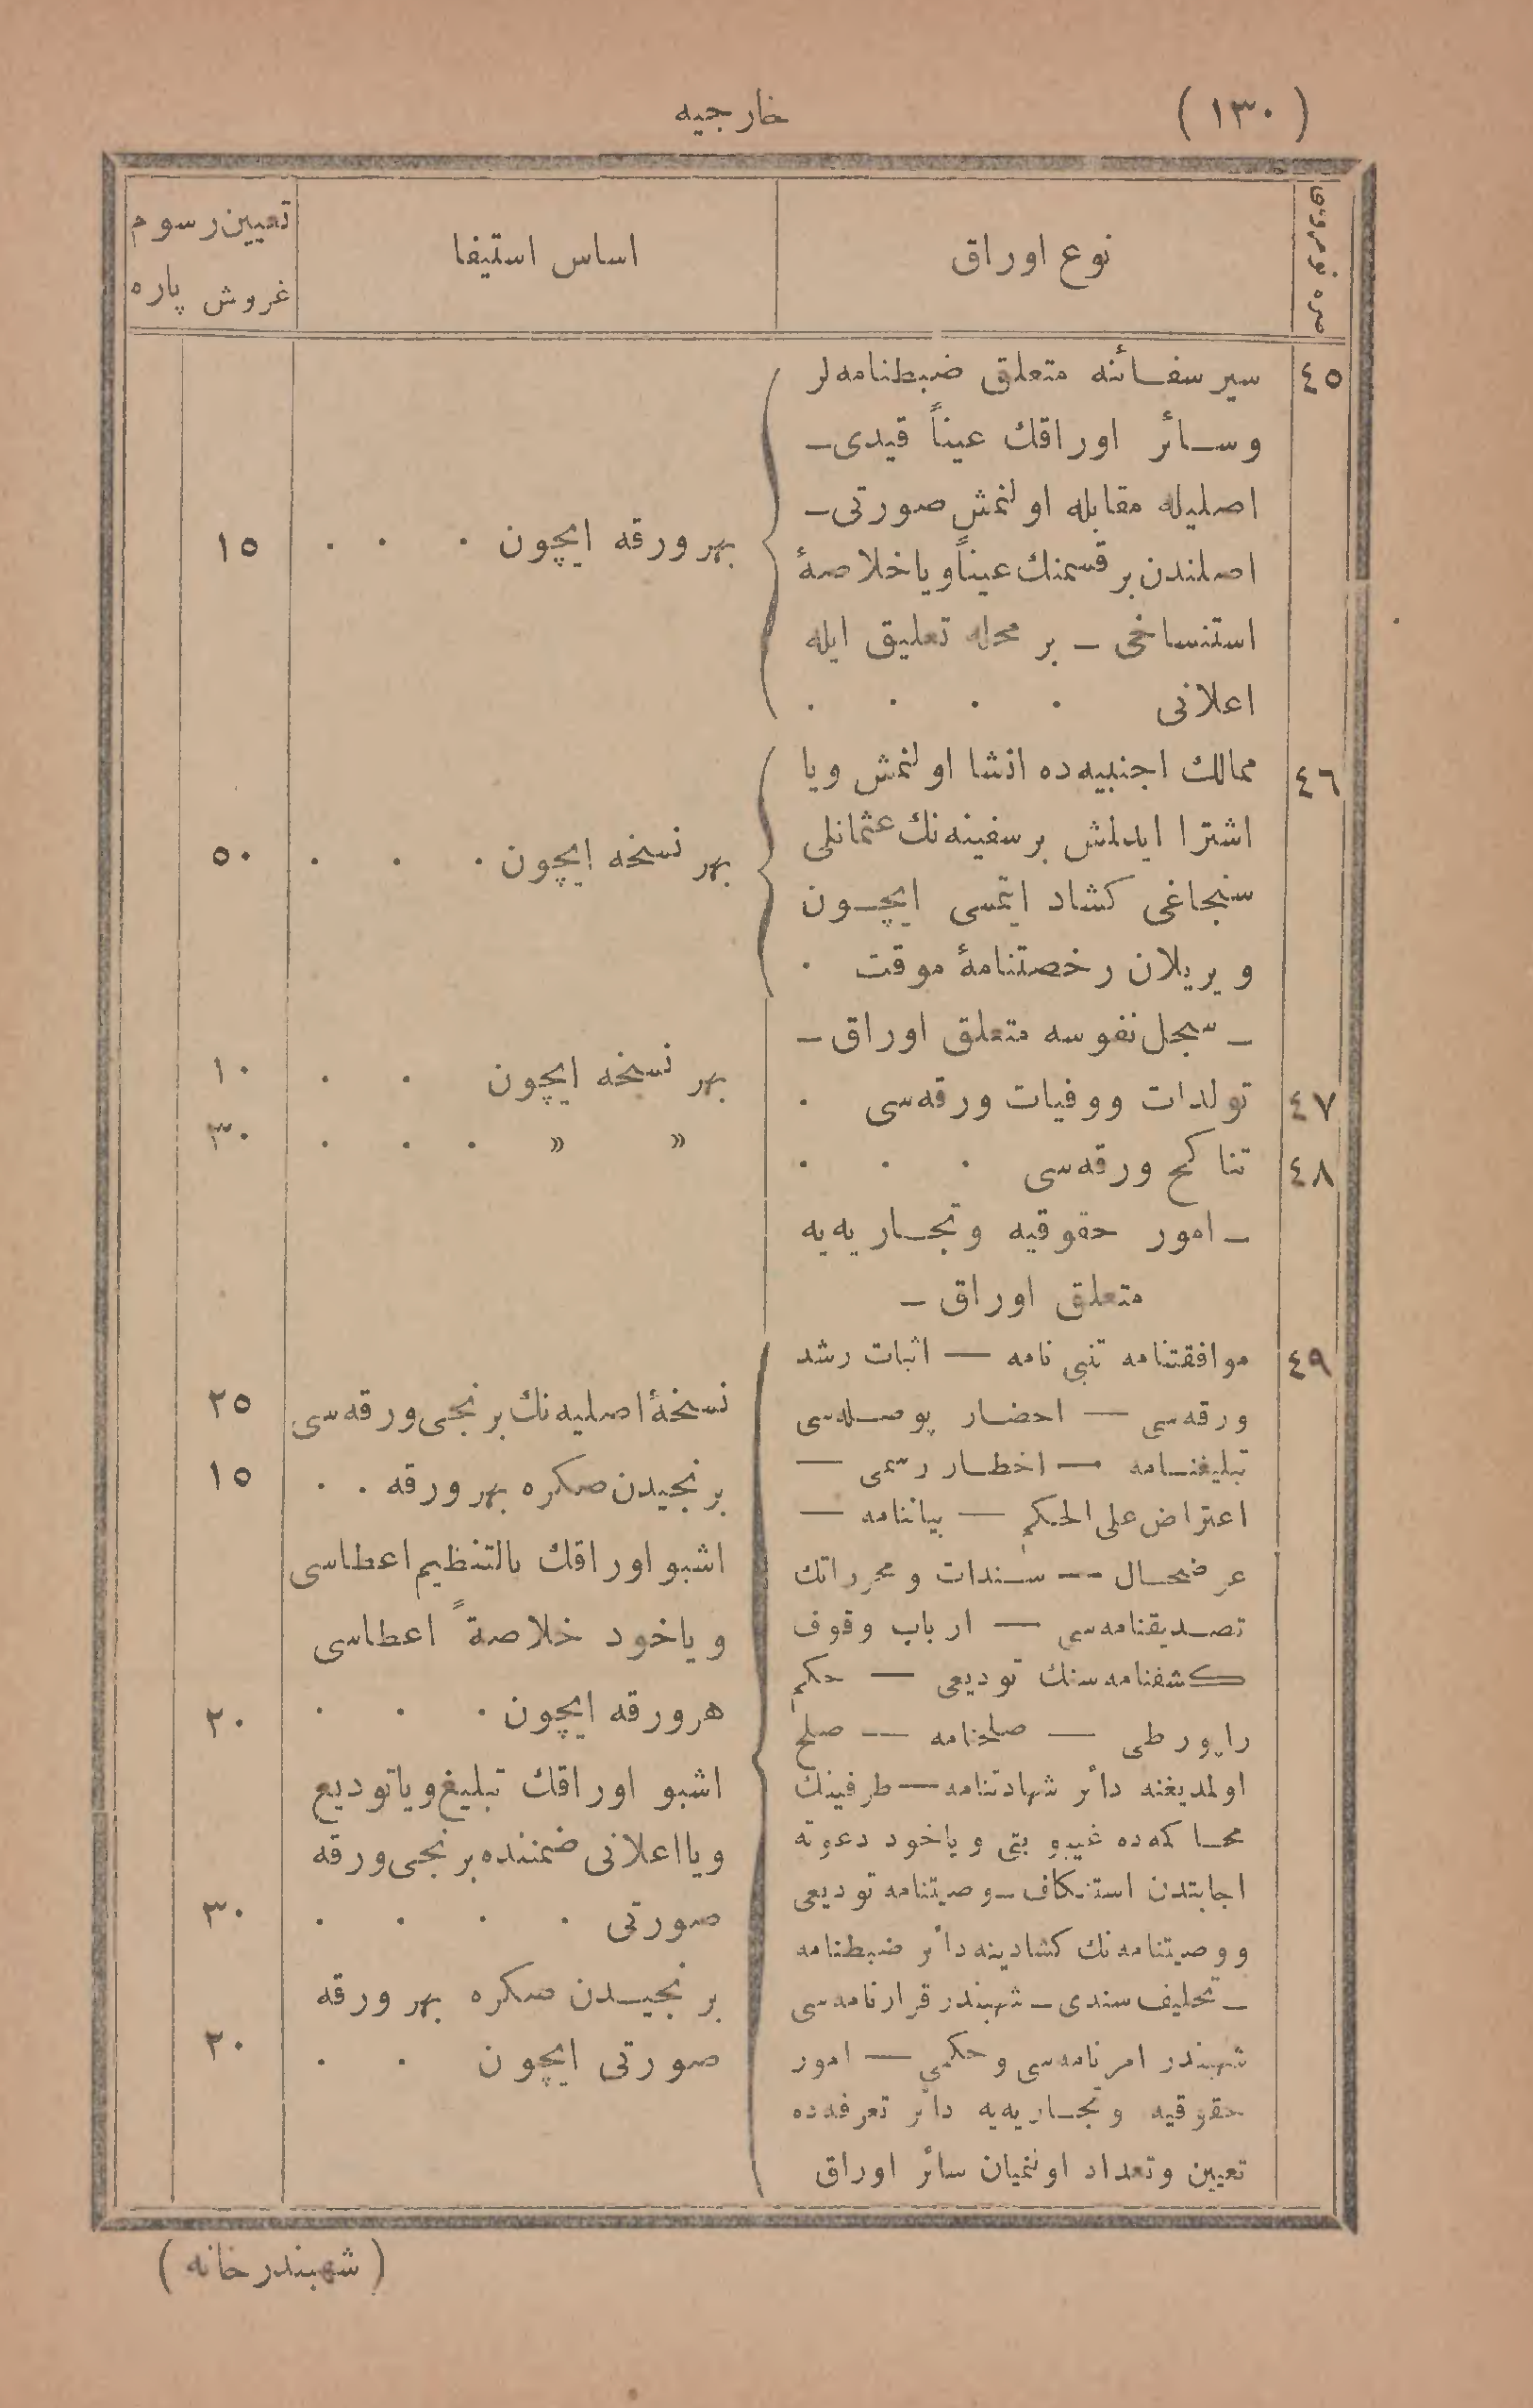 ( ١٣٠ )
خارجیه
صره نومروسی
نوع اوراق
اساس استیفا
تعیین رسوم
غروش پاره
٤٥
سیر سفـائنه متعلق ضبطنامه‌لر
وسـائر اوراقك عیناً قیدی ـ
اصلیله مقابله اولنمش صورتی ـ
اصلندن بر قسمنك عیناً ویا خلاصهٔ
استنساخی ـ بر محله تعلیق ایله
اعلانی . . . .
بهر ورقه ایچون . . .
١٥
٤٦
ممالك اجنبیه‌ده انشا اولنمش ویا
اشترا ایدلمش بر سفینه‌نك عثمانلی
سنجاغی كشاد ایتمسی ایچـون
ویریلان رخصتنامهٔ موقت .
بهر نسخه ایچون . . .
٥٠
ـ سجل نفوسه متعلق اوراق ـ
٤٧
تولدات ووفیات ورقه‌سی .
بهر نسخه ایچون . .
١٠
٤٨
تناكح ورقه‌سی . . .
» » . . .
٣٠
ـ امور حقوقیه وتجـاریه‌یه
متعلق اوراق ـ
٤٩
موافقتنامه تبنی نامه — اثبات رشد
ورقه‌سی — احضـار پوصـله‌سی
تبلیغنـامه — اخطـار رسمی —
اعتراض علی الحكم — بیاننامه —
عرضحـال — سـندات و محرراتك
تصـدیقنامه‌سی — ارباب وقوف
كشفنامه‌سنك تودیعی — حكم
راپورطی — صلحنامه — صلح
اولمدیغنه دائر شهادتنامه — طرفینك
محـاكمه‌ده غیبوبتی ویاخود دعوته
اجابتدن استنكاف ـ وصیتنامه تودیعی
ووصیتنامه‌نك كشادینه دائر ضبطنامه
ـ تحلیف سندی ـ شهبندر قرارنامه‌سی
شهبندر امرنامه‌سی وحكمی — امور
حقوقیه وتجـاریه‌یه دائر تعرفه‌ده
تعیین وتعداد اولنمیان سائر اوراق
نسخهٔ اصلیه‌نك برنجی ورقه‌سی
٢٥
برنجیدن صكره بهر ورقه . .
١٥
اشبو اوراقك بالتنظیم اعطاسی
ویاخود خلاصةً اعطاسی
هرورقه ایچون . . .
٢٠
اشبو اوراقك تبلیغ ویا تودیع
ویا اعلانی ضمننده برنجی ورقه
صورتی . . . .
٣٠
برنجیـدن صكره بهر ورقه
صورتی ایچون . .
٢٠
( شهبندرخانه )